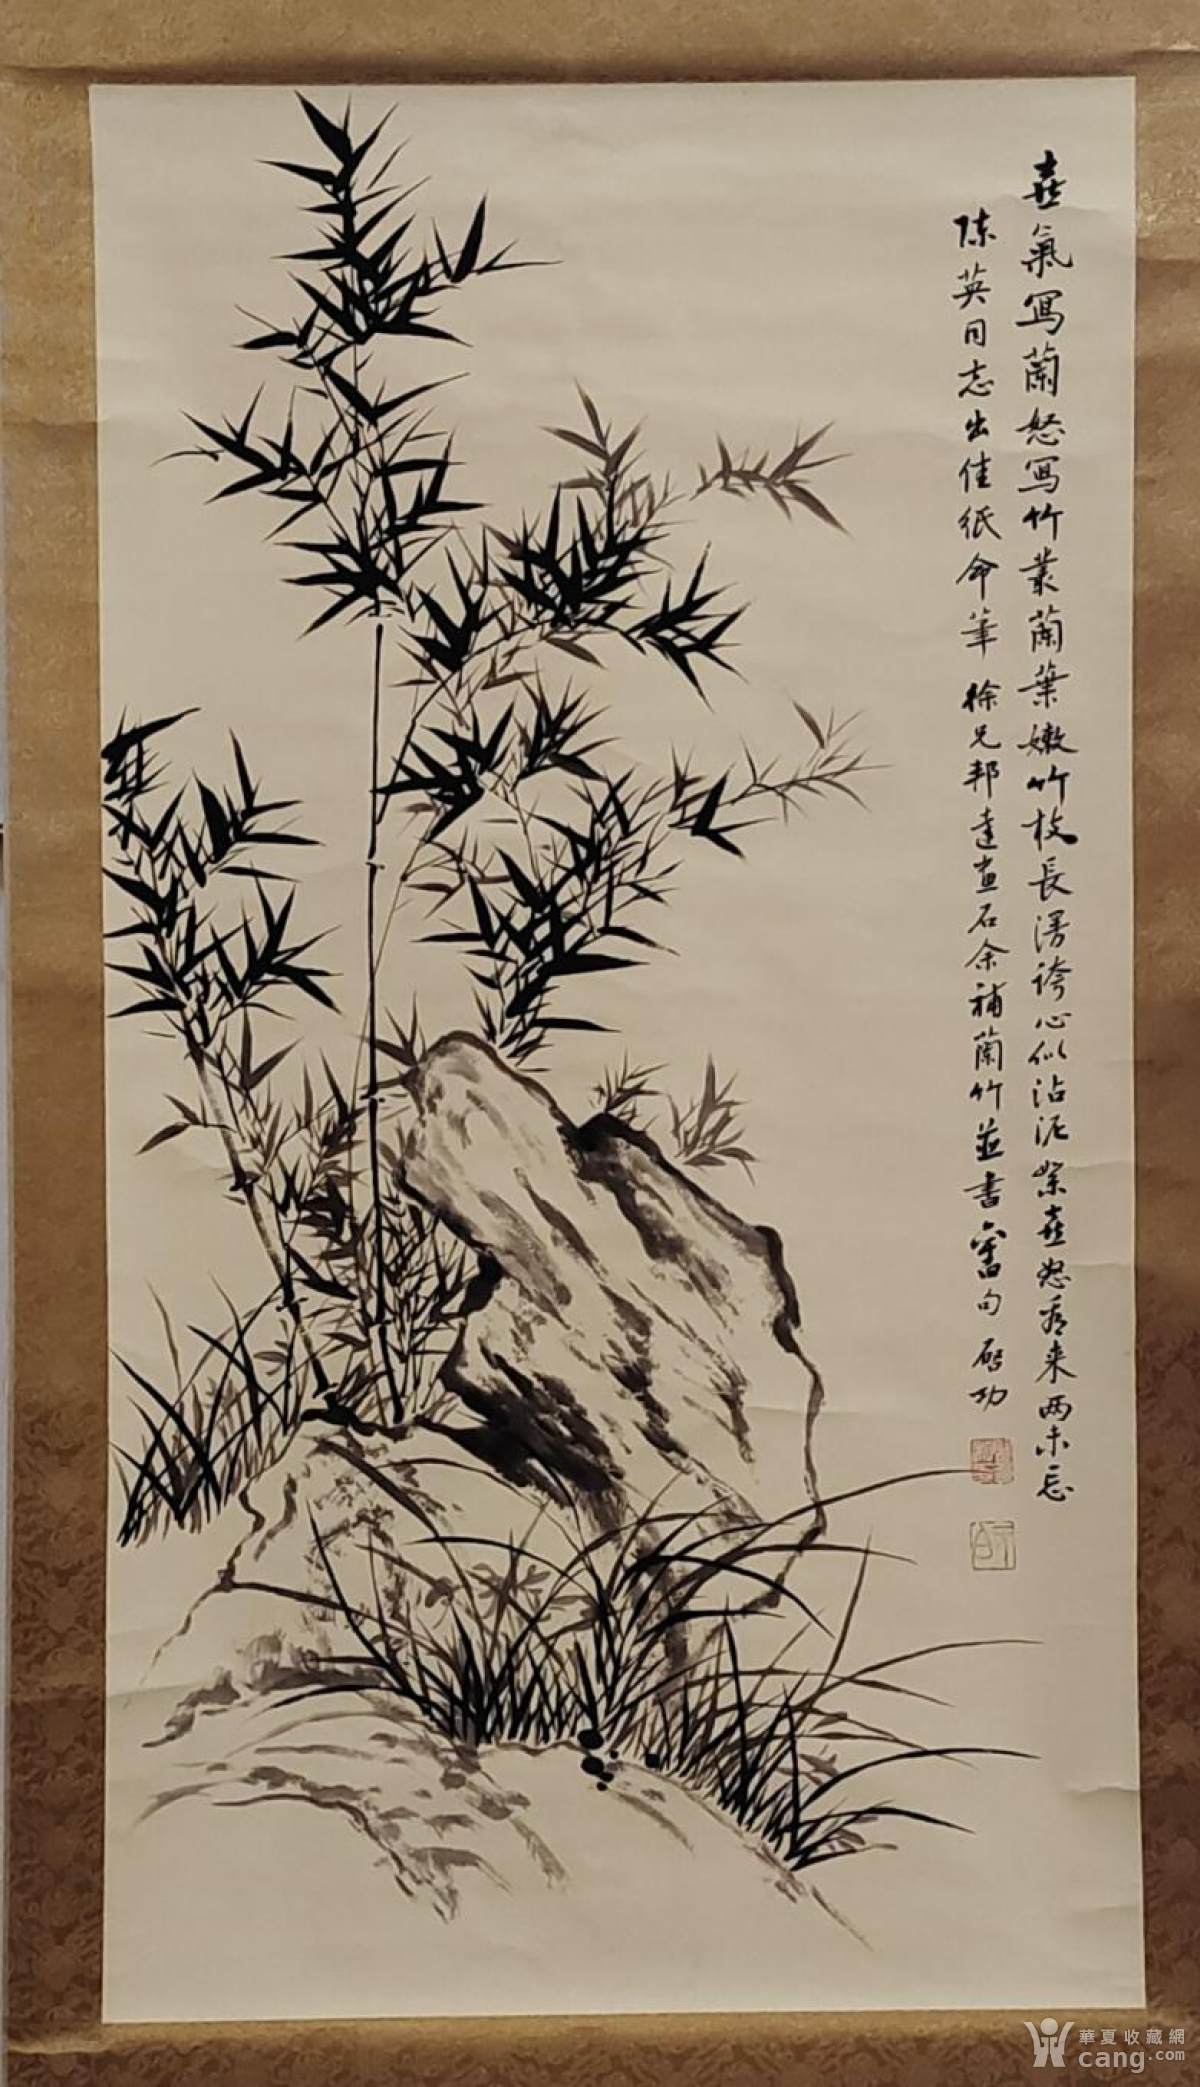 喜氣寫蘭怒寫竹叢蘭葉嫩竹枝長漫誇心似沾泥絮喜怒看來兩未忘
陈英同志出佳紙命筆 徐兄邦達畫石余補蘭竹並書舊句 启功
華夏收藏網
cang.com